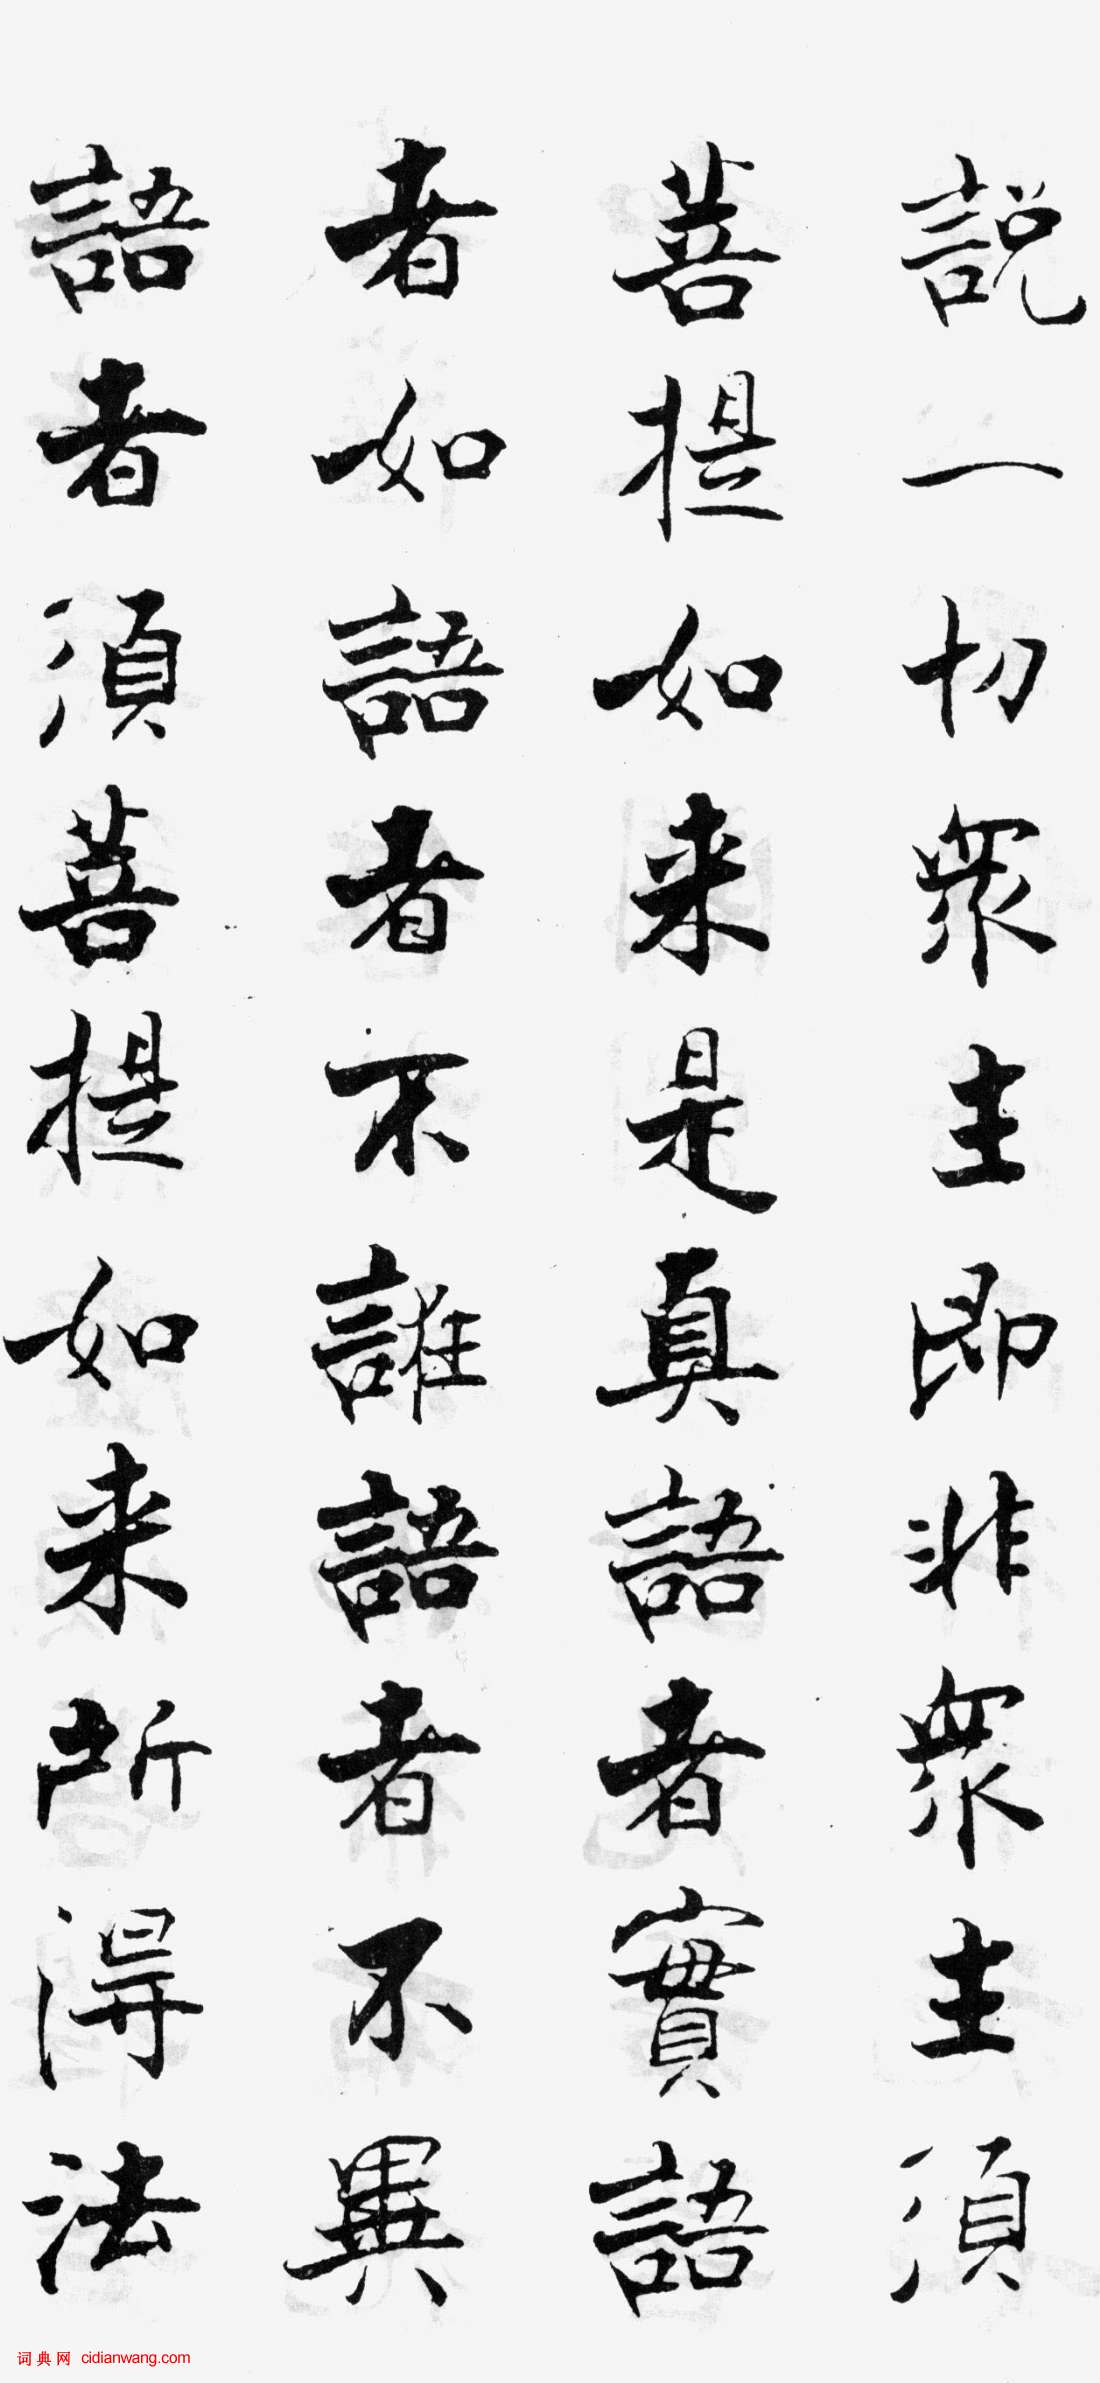 説一切衆生即非衆生須
菩提如来是真語者實語
者如語者不誑語者不異
語者須菩提如来所得法
词典网 cidianwang.com